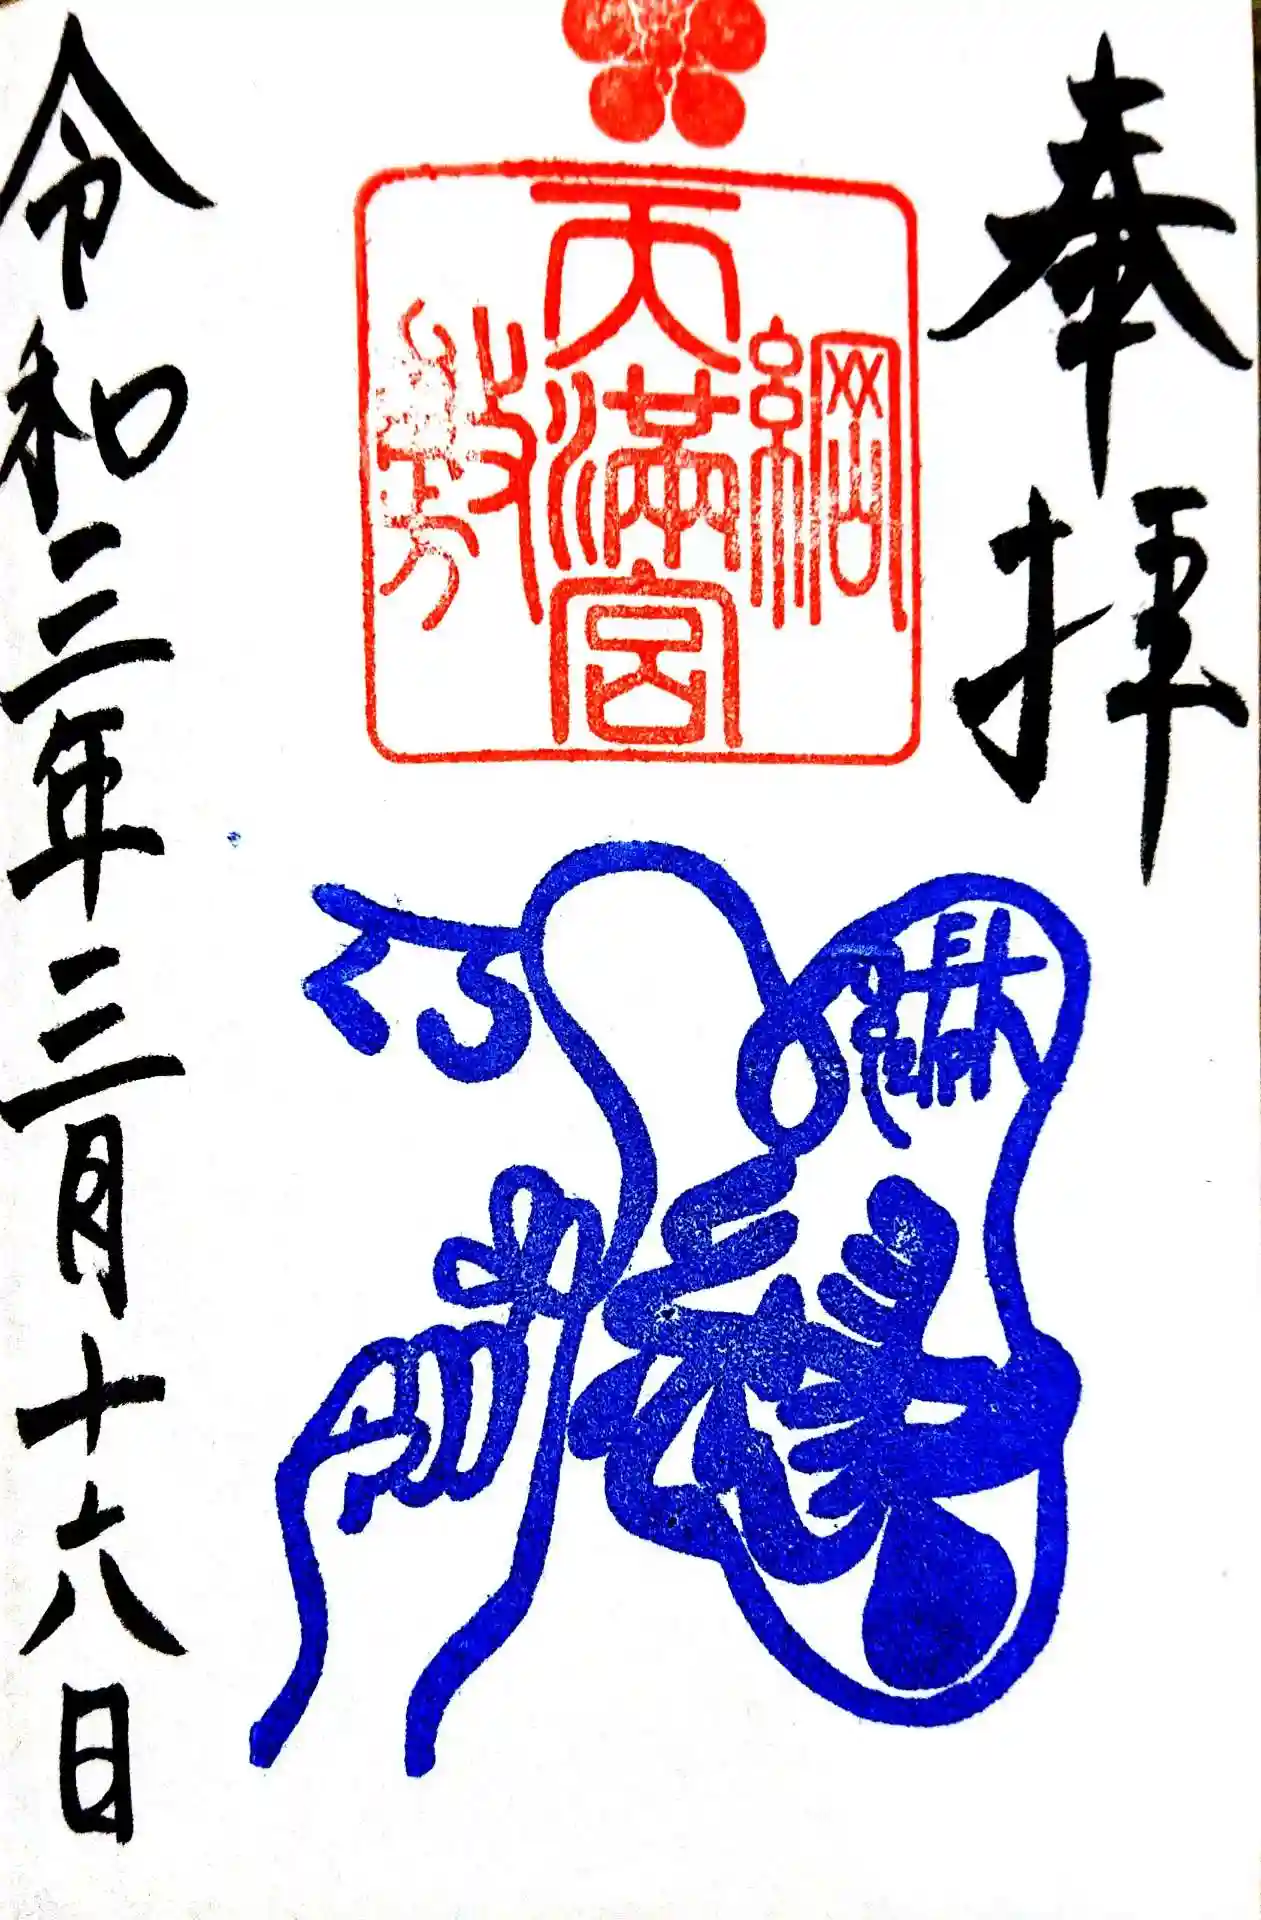 奉拝
綱
天満宮
敷
令和三年三月十六日